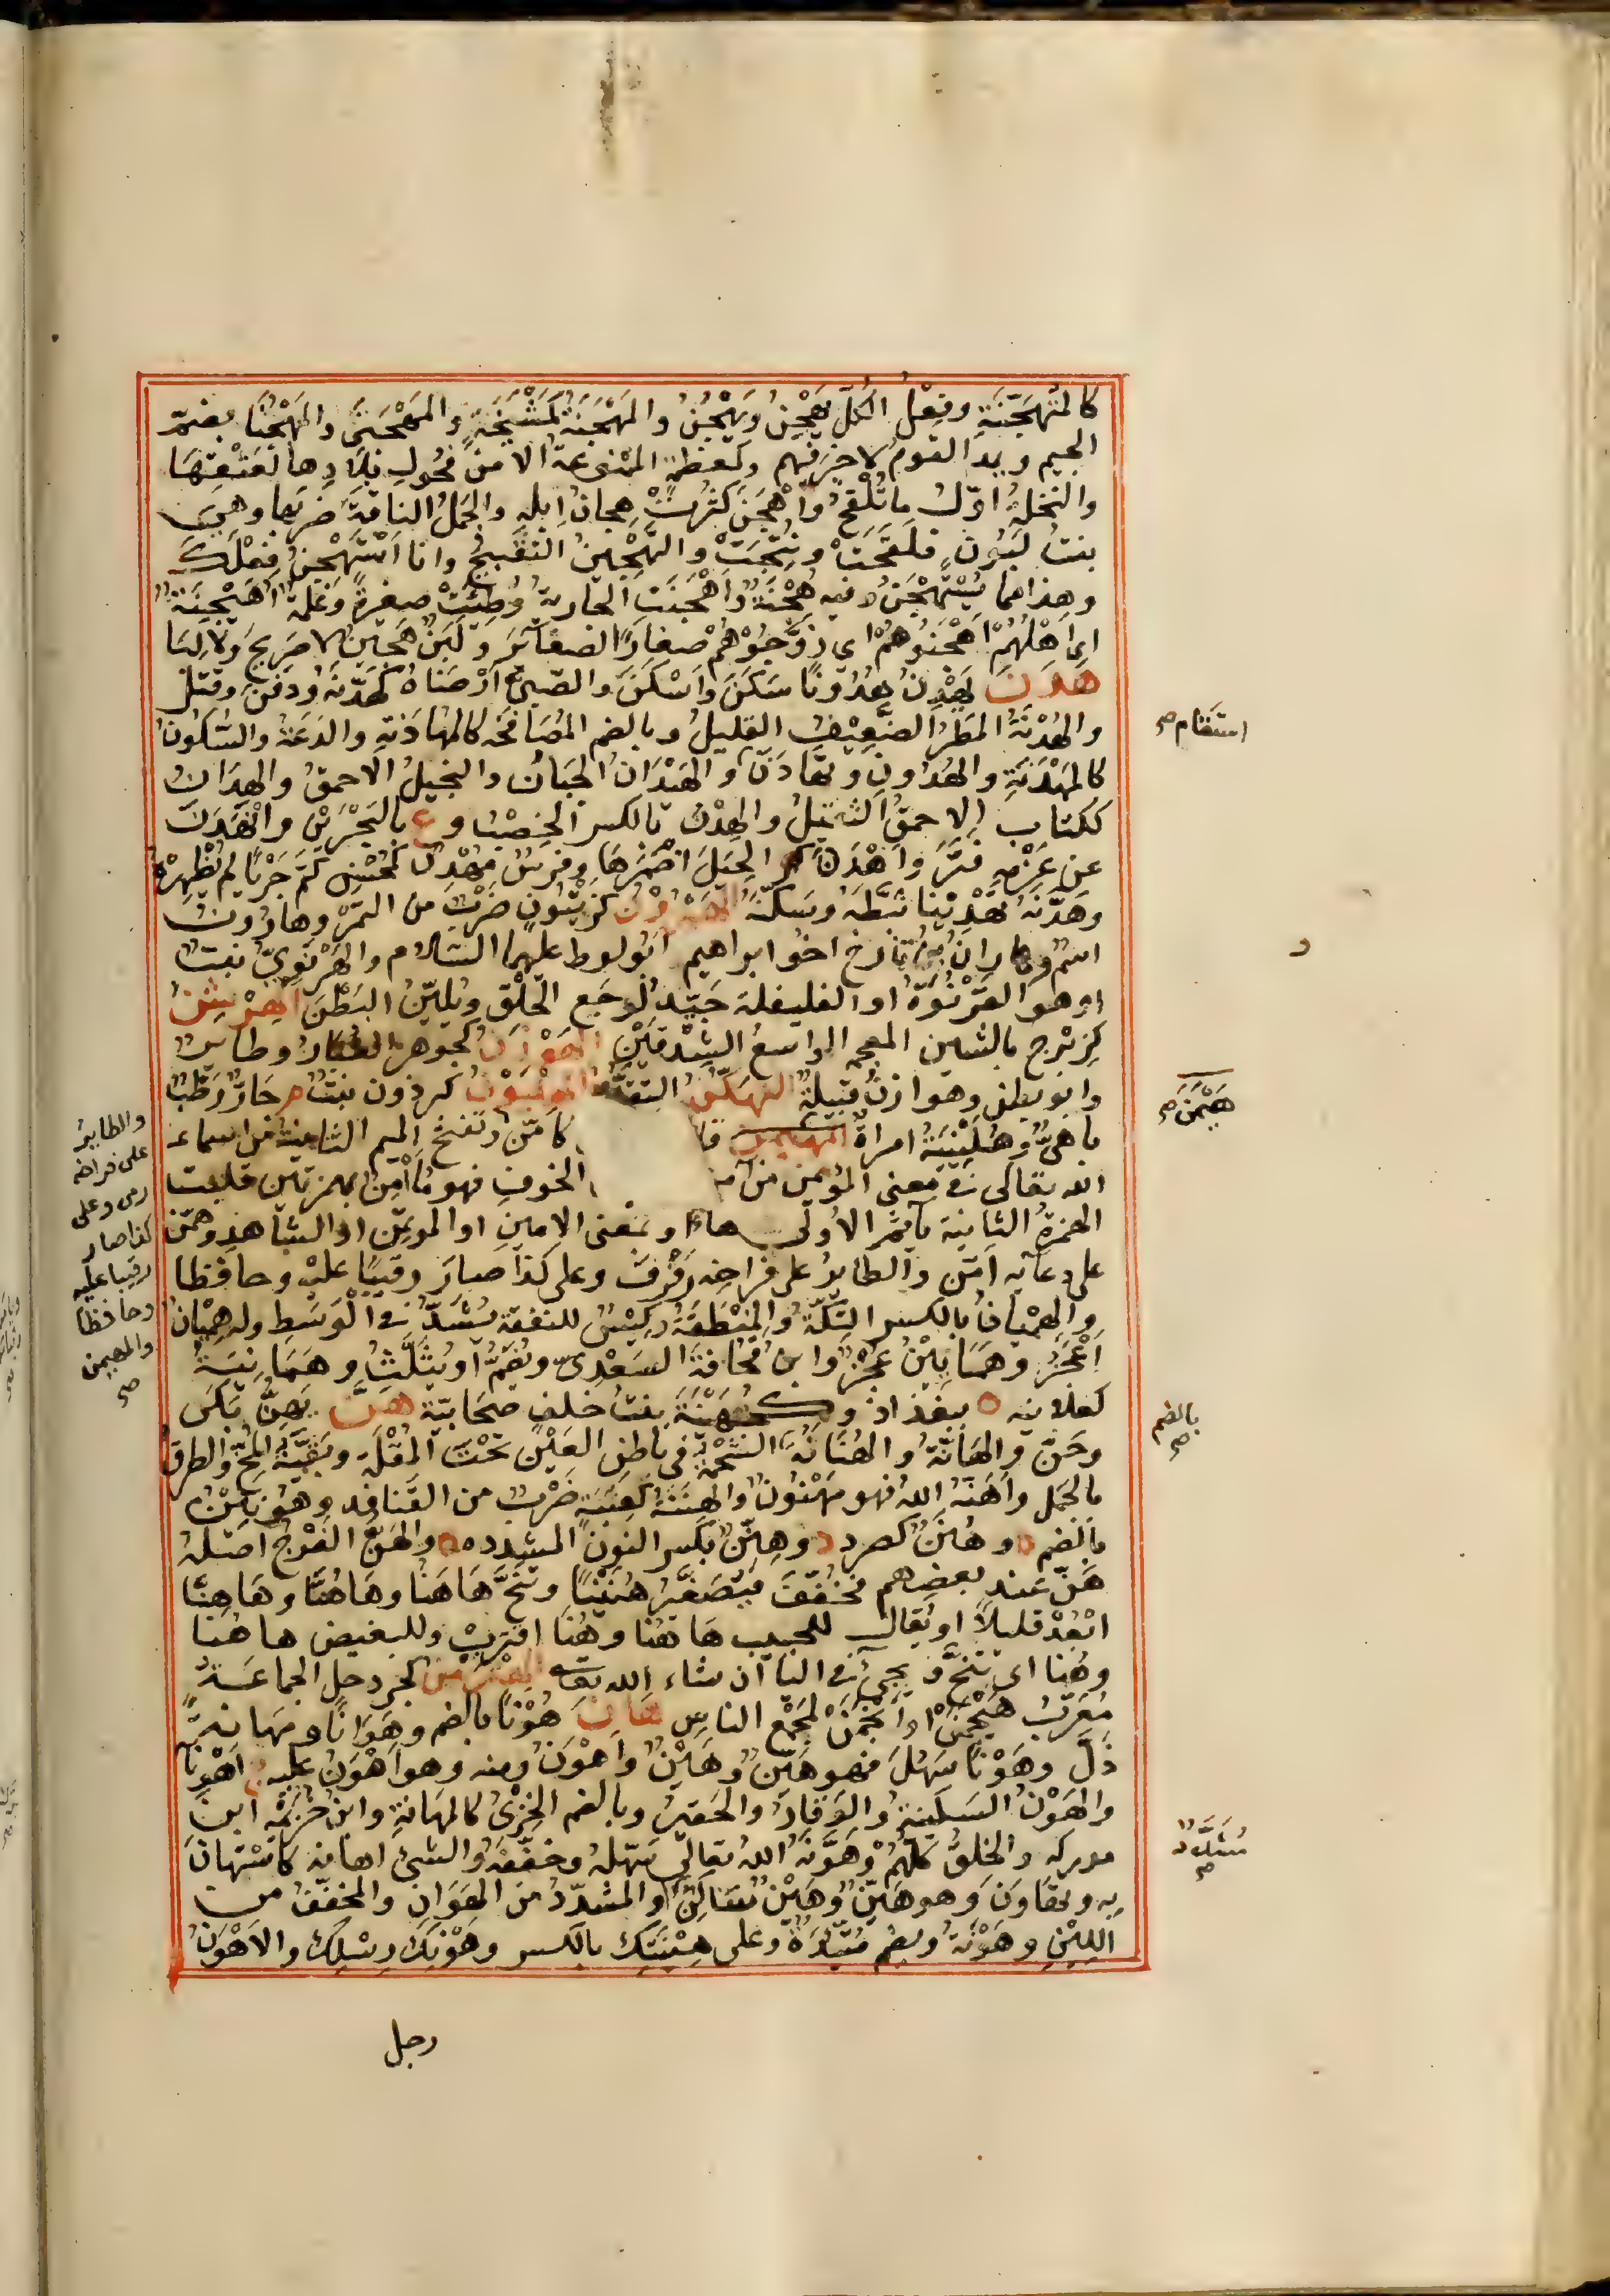 كالمتهجنة وفعل الكل يَهْجِنُ ويَهْجُنُ والمَهْجَنَةُ كمَشْيَخَةٍ والمَهْجَنَى والمَهْجُنَا بضم
الجيم وبد القوم لا خير فيهم وكمعظمة الممنوعة الا من فحول بلادها لعتقها
والنخلة اول ما تُلْقَحُ وأَهْجَنَ كثُرت هجان ابله والجمل الناقة ضربها وهي
بنت لبون فلقحت ونُتِجَت والتهجين التقبيح وانا أستهجن فعلك
وهذا مما يُستهجن وفيه هُجْنَة وأُهْجِنَتِ الجارية وُطِئَت صغيرة وغلمة أُهَيْجِنَة
اي اهلهم اهجنوهم اي زوجوهم صغارا الصغائر ولبن هجين لا صريح ولا لِبَا
هدن يَهْدِنُ هُدُونًا سكن واسكن والصبي ارضاه كهدّنه ودفن وقتل
والهَدْنَةُ المطر الضعيف القليل وبالضم المصالحه كالمهادنة والدعة والسكون
كالمَهْدَنَةِ والهُدُونِ وتهادن والهَيْدَانُ الجبان والبخيل الاحمق والهدان
ككتاب الاحمق الثقيل والهِدْنُ بالكسر الخِصْبُ و ع بالبحرين وانهدن
عن عزمه فتر وأهدن الخيل اضمرها وفرس مُهْدِن كمُحْسِن كتم جريا لم يظهره
وهدّنه تهدينا ثبّطه وسكّنه الهيرون كزيتون ضرب من التمر وهارون
اسم وهاران بن تارخ اخو ابراهيم ابو لوط عليهما السلام والهَرْنَوِيُّ نبت
او هو القَرْنُوَةُ او الفليفلة جيّد لوجع الحلق ويُلَيِّنُ البَطْنَ الهرشن
كزبرج بالشين المعجم الواسع الشدقين الهوزن كجوهر الغبار وطاير
وابو بطن وهوازن قبيلة التهكن التندم الهليون كبرذون نبت م حارّ رطب
باهيّ وهُلَيْنَةُ امراة المهيمن كآمن وتفتح الميم الثانية من اسماء
الله تعالى في معنى المؤمن من آمن الخوف فهو مُأَأْمِن بهمزتين قلبت
الهمزة الثانية ياء ثم الاولى هاء او بمعنى الامين او المؤتمن او الشاهد وهمّن
على دعائه امّن والطاير على فراخه رفرف وعلى كذا صار رقيبا عليه وحافظا
والهِمْيَانُ بالكسر التكّة والمِنْطَقَةُ وكيس للنفقة يُشَدُّ في الوسط وله هِمْيَان
أَعْجَرُ وهَمَايِينُ عُجْرٌ وابن قحافة السعدي ويُضَمُّ او يُثَلَّثُ وهَمَانِيَةُ
كعلانيه ببغداد وكجُهَيْنَةَ بنت خلف صحابيّة هنّ يَهِنُّ بكى
وحنّ والهانّة والهُنَانَةُ الشحمة في باطن العين تحت المُقْلَة وبقية المخ والطرق
بالجمل وأهنّه الله فهو مهنون والهِنَنَةُ كعِنَبَة ضرب من القنافذ وهُوَيْنٌ
بالضم وهُنَنٌ كصرد وهِنِّن بكسر النون المشدده والهَنُّ الفرج اصله
هَنٌّ عند بعضهم فخُفّف فيُصَغَّرُ هُنَيْنًا وتنحّ هاهَنا وهاهُنّا وهاهِنّا
ابعُد قليلا او يقال للحبيب هاهُنا وهُنا اقترب وللبغيض هاهَنا
وهَنا اي تنحّ ويجيء في اليا ان شاء الله تعه الهنزمن كجردحل الجماعة
مُعَرَّب هَنْجَمَنْ او انجمن لمجمع الناس هان هُوْنًا بالضم وهَوَانًا ومَهانة
ذلّ وهَوْنًا سَهُلَ فهو هَيِّن وهَيْن وأهْوَن ومنه وهو اهون عليه ج أهْوِنَا
والهَوْنُ السكينة والوقار والحقير وبالضم الخِزْيُ كالمهانة وابن خزيمة ابن
مدركه والخلق كلهم وهوّنه الله تعالى سهّله وخفّفه والشيء اهانه كاستهان
به وتهاون وهو هَيِّن وهَيْن ساكن او المشدّد من الهوان والمخفف من
اللين وهَوْنَةٌ ويضم متئدة وعلى هِينَتِك بالكسر وهَوْنِك رِسْلِك والاهون
رجل
استقام صح
هَيْمَنَ صح
بالضم صح
مشدد صح
والطاير
على فراخه
رمى وعلى
كذا صار
رقيبا عليه
وحافظا
والمهيمن
صح